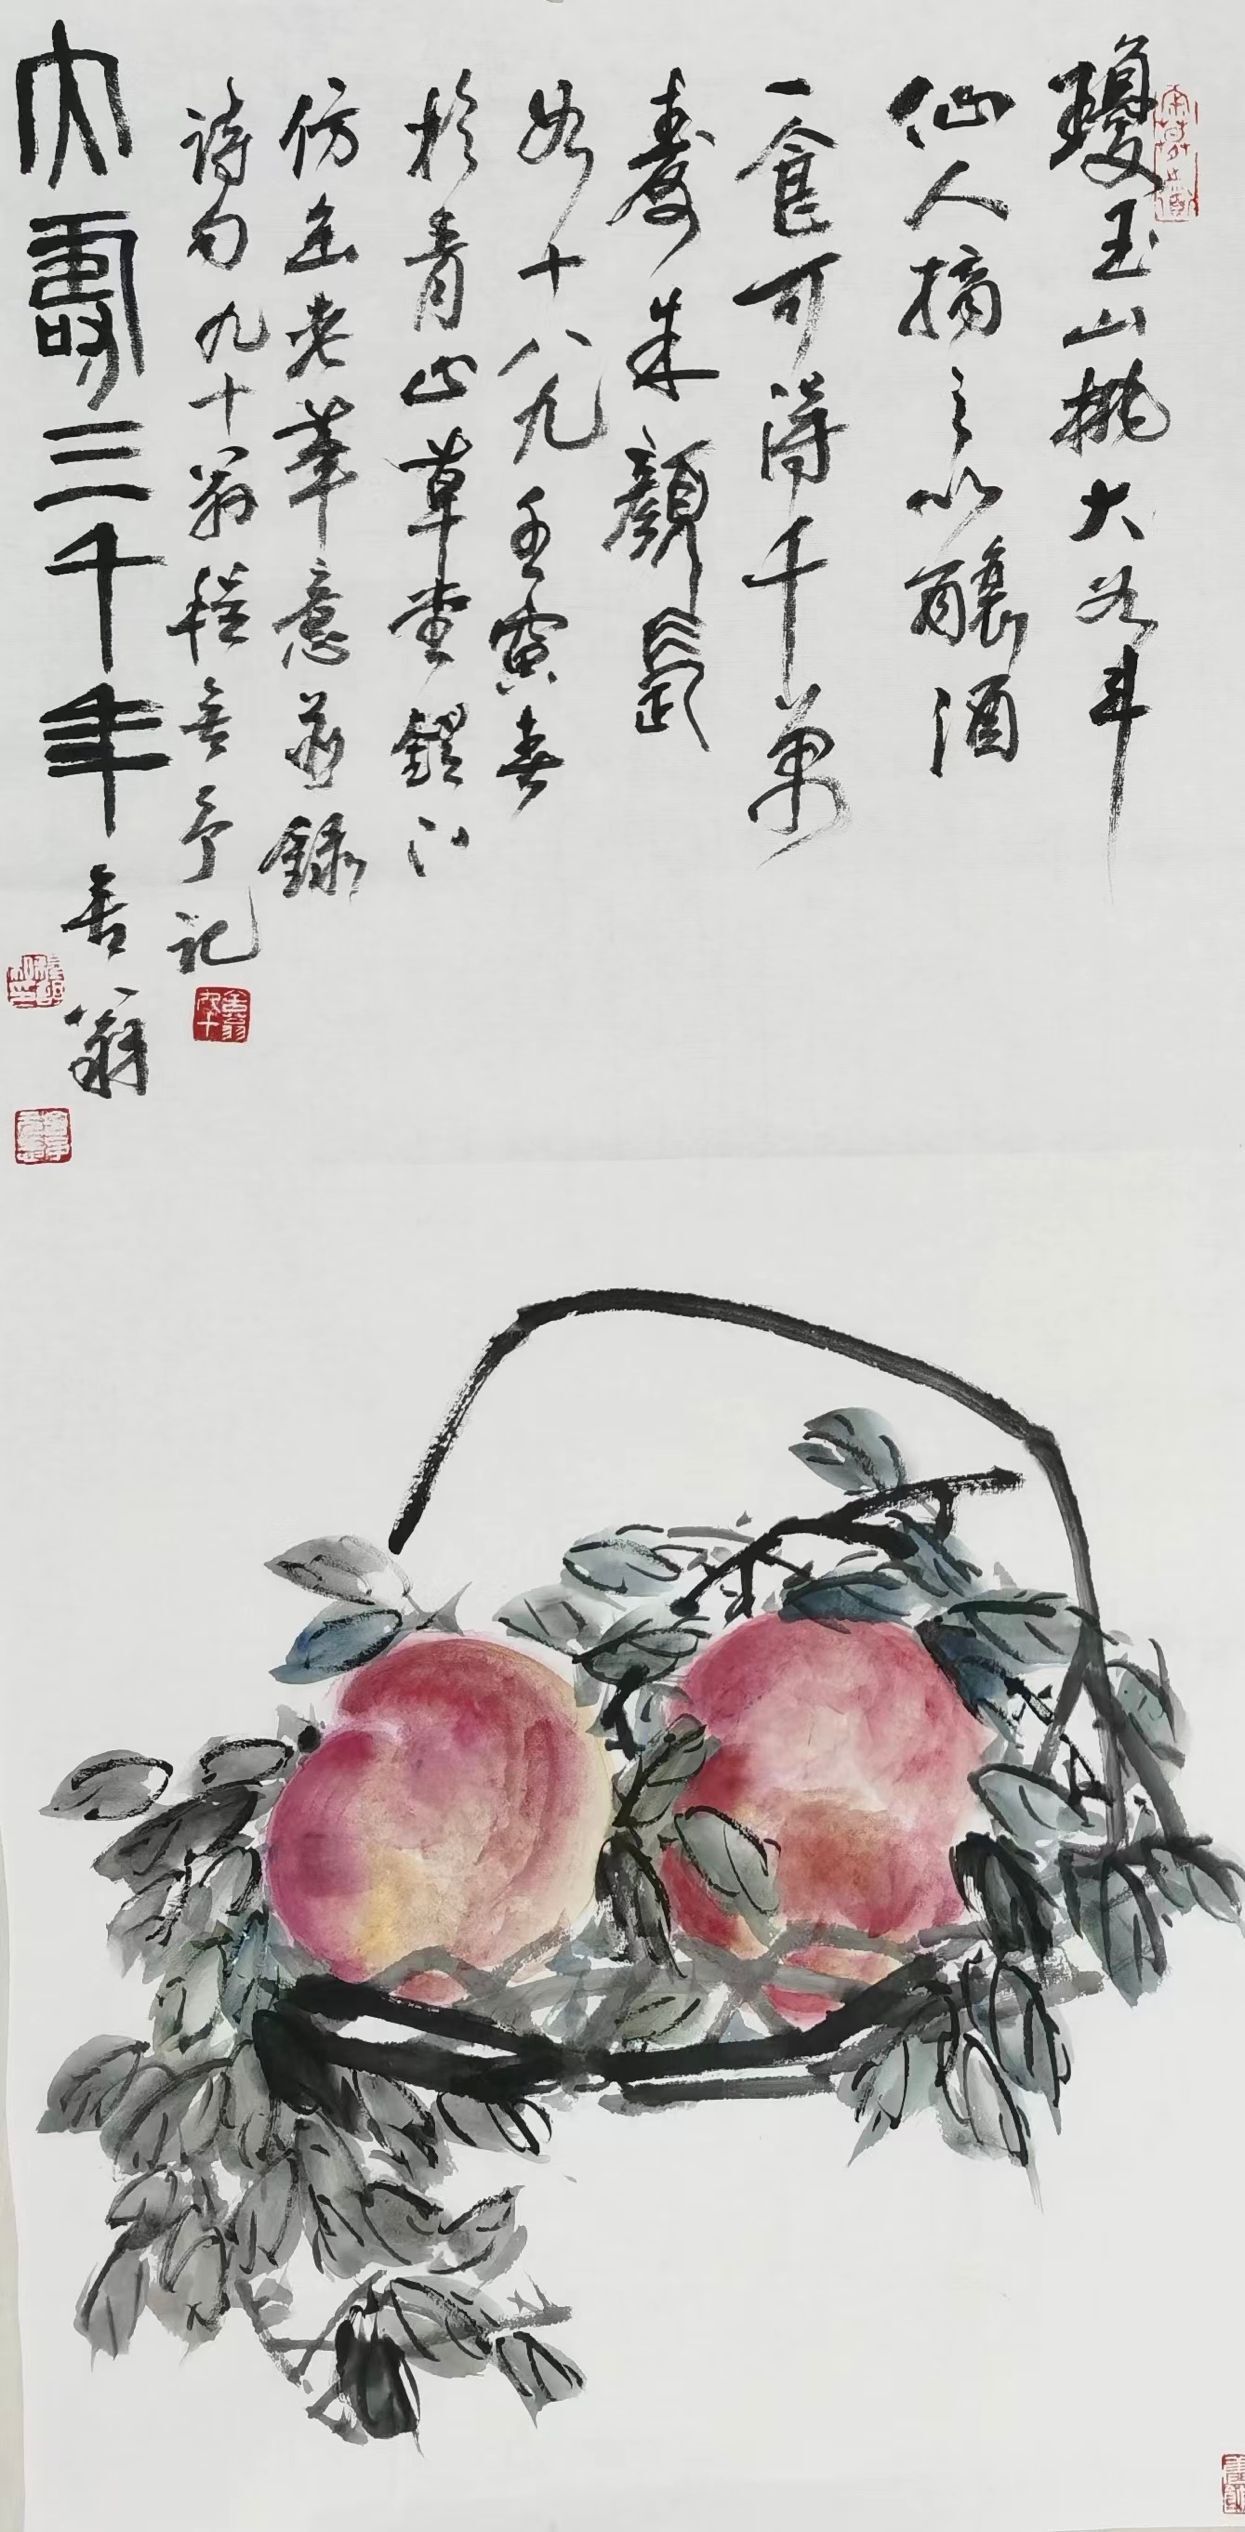 瓊玉山桃大如斗
仙人摘之以釀酒
一食可得千萬
壽朱顏長
如十八九壬寅春
於青山草堂鐙下
仿缶老筆意並錄
詩句九十翁程吾予記
大壽三千年
吾翁